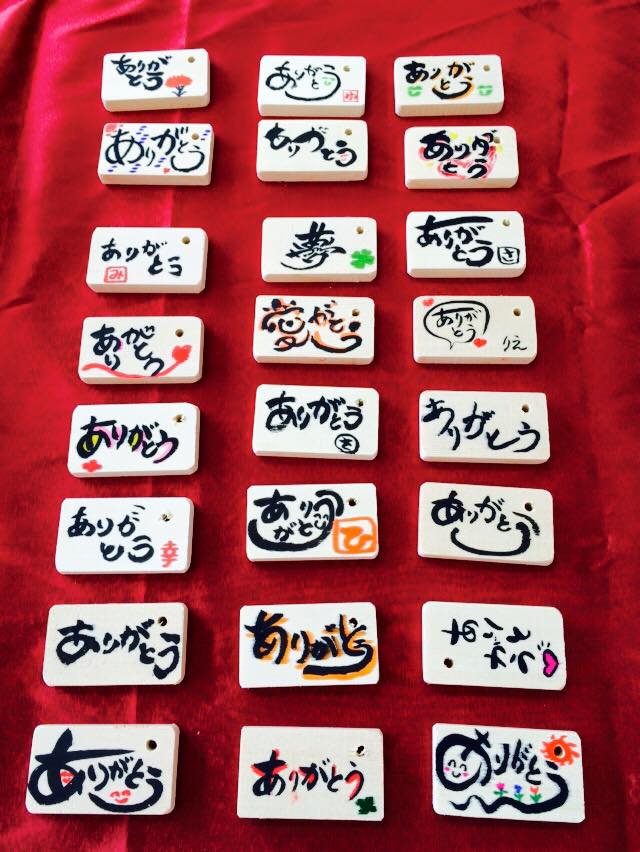 ありが
とう
ありが
とう
ありが
とう
ありがとう
ありがとう
ありが
とう
ありが
とう
み
夢
ありが
とう
さ
あり
がとう
愛がとう
ありが
とう
りえ
ありがとう
ありがとう
ありがとう
ありが
とう
幸
あり
がとう
ひ
ありがとう
ありがとう
ありがとう
ありがとう
ありがとう
ありがとう